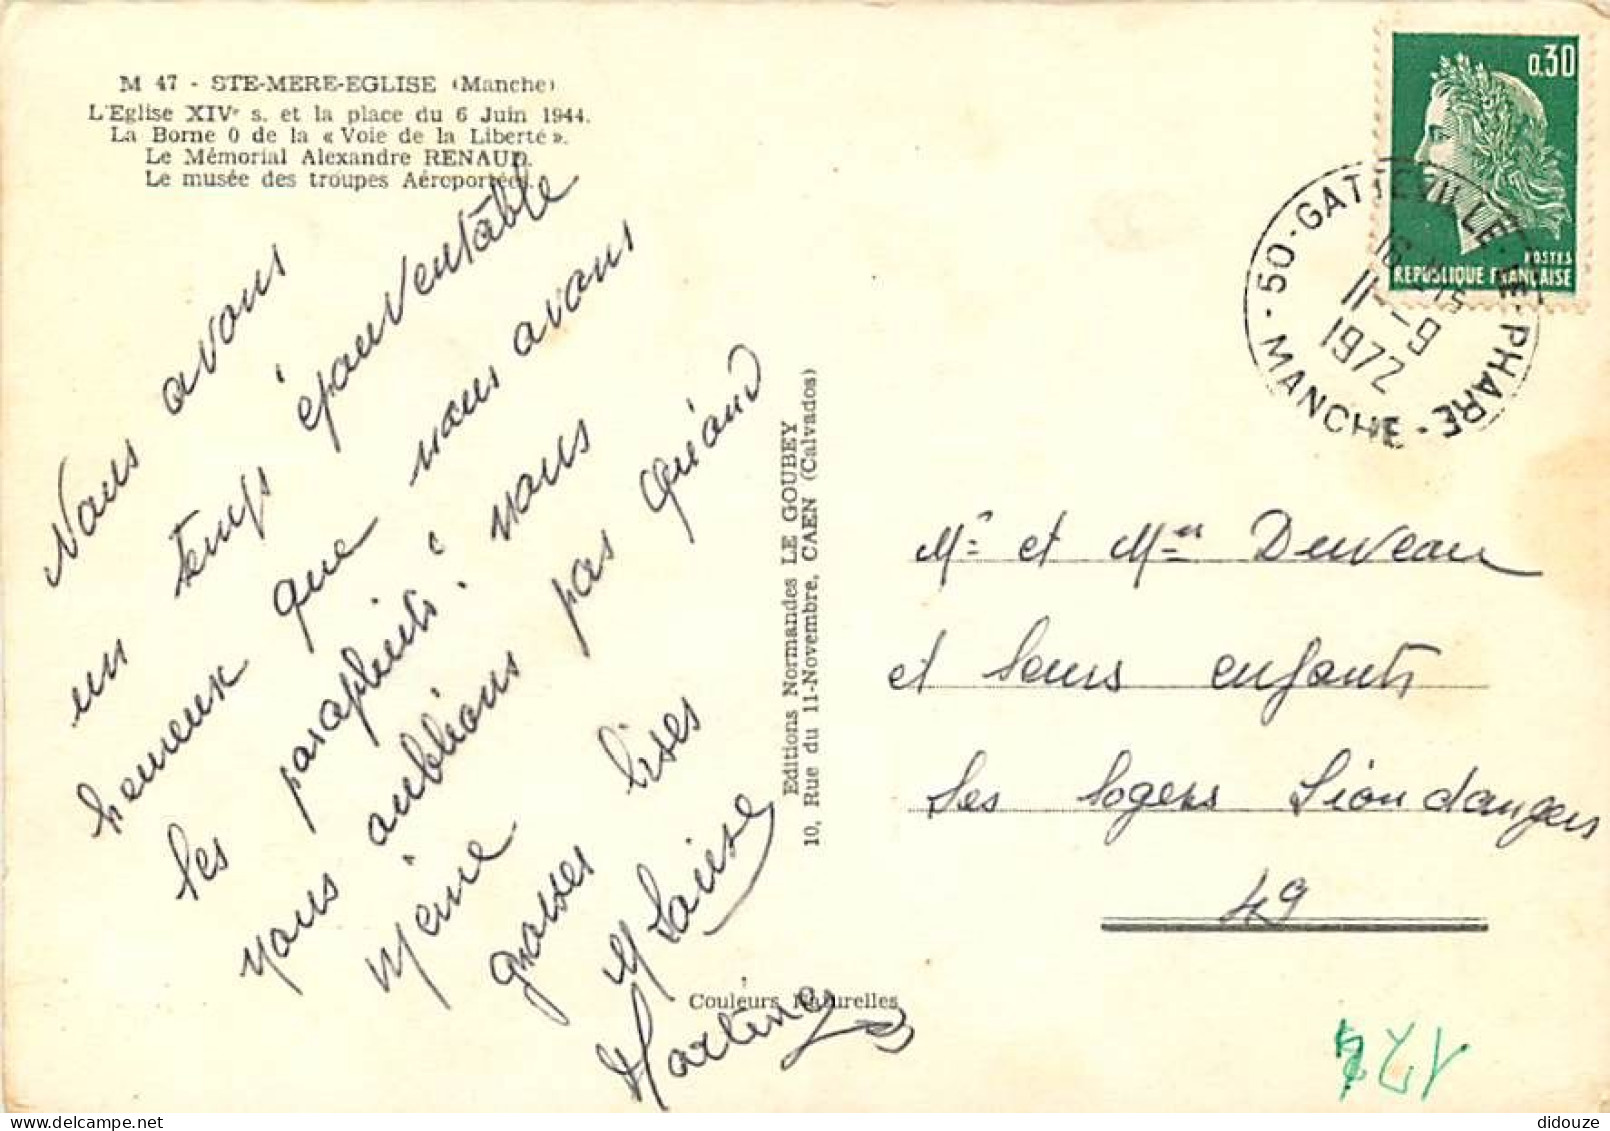 M 47 - STE-MERE-EGLISE (Manche)
L'Eglise XIVe s. et la place du 6 Juin 1944.
La Borne 0 de la « Voie de la Liberté ».
Le Mémorial Alexandre RENAUD.
Le musée des troupes Aéroportées.
Nous avons
un temps épouventable
heureux que nous avons
les parapluits : nous
vous oublions pas quand
même
grosses bises
Martine
Editions Normandes LE GOUBEY
10, Rue du 11-Novembre, CAEN (Calvados)
Couleurs Naturelles
0,30
POSTES
REPUBLIQUE FRANÇAISE
50 - GATTEVILLE-LE-PHARE - MANCHE -
16 H 15
11 - 9
1972
Mr et Mme Duveau
et leurs enfants
Les logers Lion dangers
49
didouze